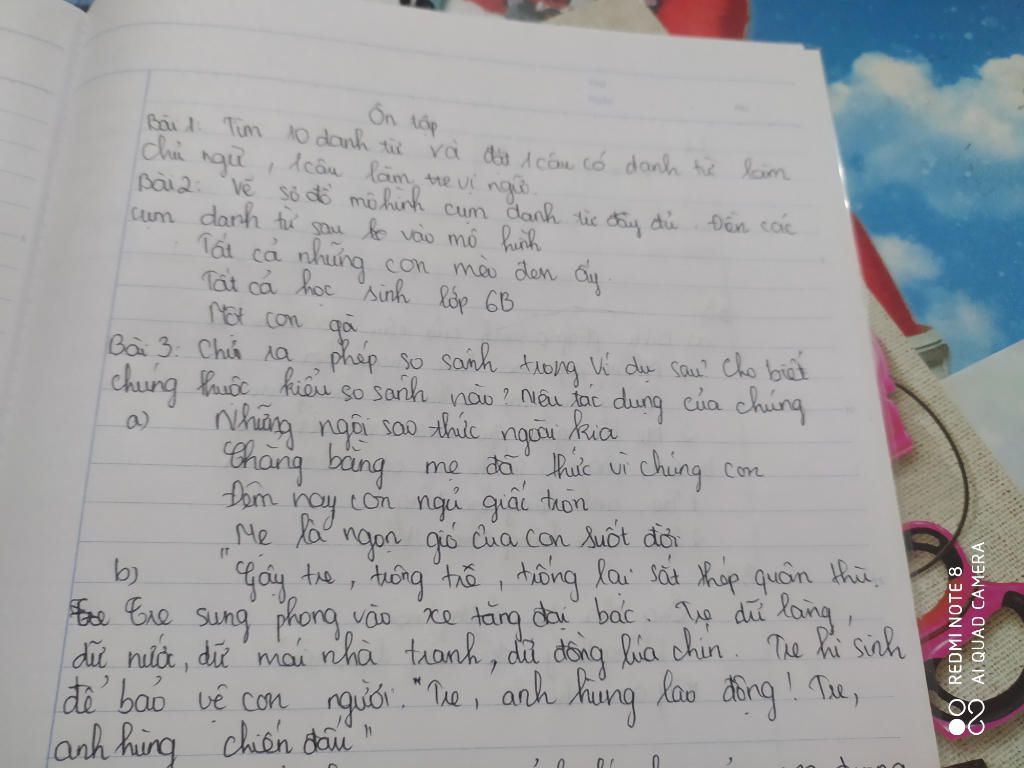 Ôn tập
Bài 1: Tìm 10 danh từ và đặt 1 câu có danh từ làm
chủ ngữ, 1 câu làm vị ngữ.
Bài 2: Vẽ sơ đồ mô hình cụm danh từ đầy đủ. Đền các
cụm danh từ sau vào mô hình
Tất cả những con mèo đen ấy.
Tất cả học sinh lớp 6B
Một con gà
Bài 3: Chỉ ra phép so sánh trong ví dụ sau? Cho biết
chúng thuộc kiểu so sánh nào? Nêu tác dụng của chúng
a) Những ngôi sao thức ngoài kia
Chẳng bằng mẹ đã thức vì chúng con
Đêm nay con ngủ giấc tròn
Mẹ là ngọn gió của con suốt đời
b) "Gậy tre, trông trẽ, trống lại sắt thép quân thù.
Tre sung phong vào xe tăng đại bác. Tre dữ làng,
dữ nước, dữ mái nhà tranh, dữ đồng lúa chín. Tre hi sinh
để bảo vệ con người. "Tre, anh hùng lao động! Tre,
anh hùng chiến đấu"
REDMI NOTE 8
AI QUAD CAMERA